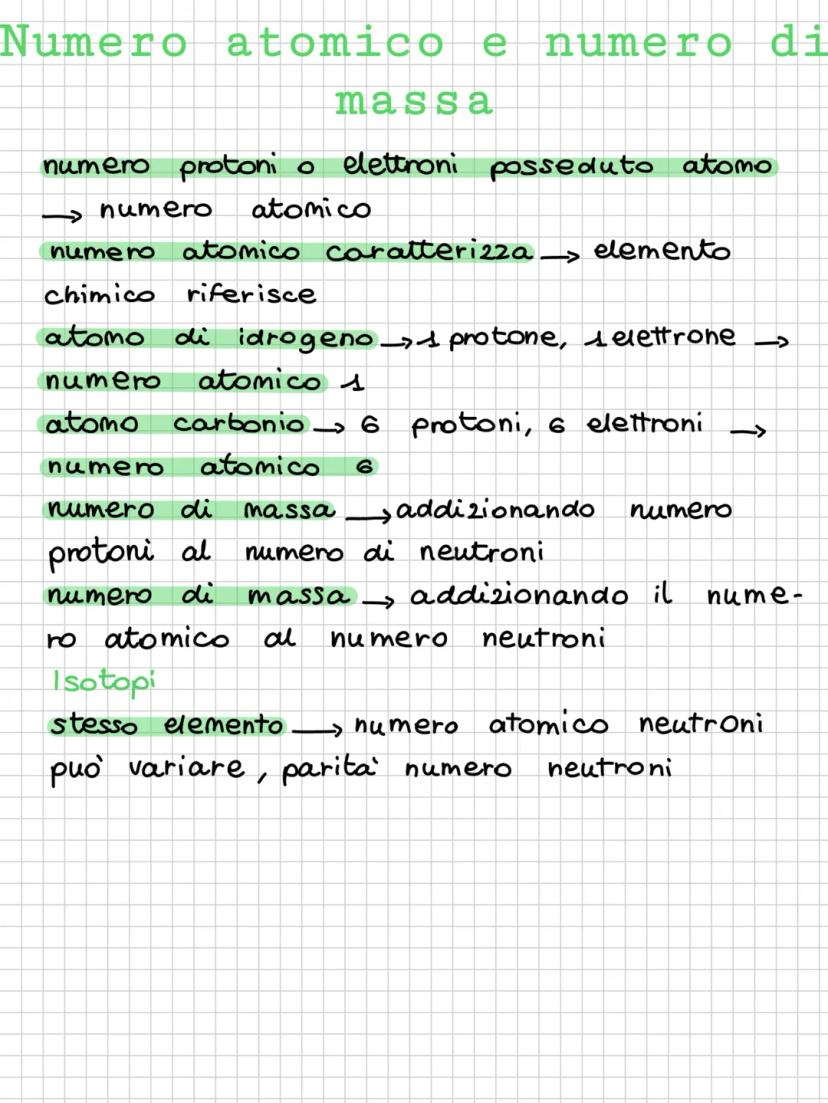 Numero atomico e numero di
massa
numero protoni o elettroni posseduto atomo
→ numero atomico
numero atomico caratterizza → elemento
chimico riferisce
atomo di idrogeno → 1 protone, 1 elettrone →
numero atomico 1
atomo carbonio → 6 protoni, 6 elettroni →
numero atomico 6
numero di massa → addizionando numero
protoni al numero di neutroni
numero di massa → addizionando il nume-
ro atomico al numero neutroni
Isotopi
stesso elemento → numero atomico neutroni
può variare, parità numero neutroni